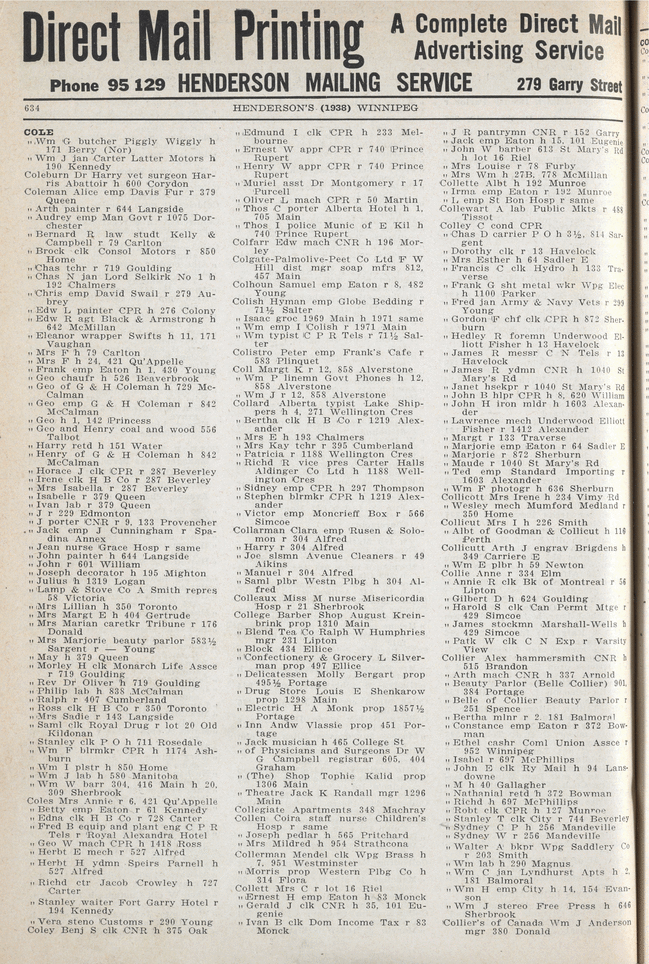 Direct Mail Printing
A Complete Direct Mail
Advertising Service
Phone 95 129 HENDERSON MAILING SERVICE 279 Garry Street
634 HENDERSON'S (1938) WINNIPEG
COLE
„ Wm G butcher Piggly Wiggly h
171 Berry (Nor)
„ Wm J jan Carter Latter Motors h
190 Kennedy
Coleburn Dr Harry vet surgeon Har-
ris Abattoir h 600 Corydon
Coleman Alice emp Davis Fur r 379
Queen
„ Arth painter r 644 Langside
„ Audrey emp Man Govt r 1075 Dor-
chester
„ Bernard R law studt Kelly &
Campbell r 79 Carlton
„ Brock clk Consol Motors r 850
Home
„ Chas tchr r 719 Goulding
„ Chas N jan Lord Selkirk No 1 h
192 Chalmers
„ Chris emp David Swail r 279 Au-
brey
„ Edw L painter CPR h 276 Colony
„ Edw R agt Black & Armstrong h
642 McMillan
„ Eleanor wrapper Swifts h 11, 171
Vaughan
„ Mrs F h 79 Carlton
„ Mrs F h 24, 421 Qu'Appelle
„ Frank emp Eaton h 1, 430 Young
„ Geo chaufr h 526 Beaverbrook
„ Geo of G & H Coleman h 729 Mc-
Calman
„ Geo emp G & H Coleman r 842
McCalman
„ Geo h 1, 142 Princess
„ Geo and Henry coal and wood 556
Talbot
„ Harry retd h 151 Water
„ Henry of G & H Coleman h 842
McCalman
„ Horace J clk CPR r 287 Beverley
„ Irene clk H B Co r 287 Beverley
„ Mrs Isabella r 287 Beverley
„ Isabelle r 379 Queen
„ Ivan lab r 379 Queen
„ J r 229 Edmonton
„ J porter CNR r 9, 133 Provencher
„ Jack emp J Cunningham r Spa-
dina Annex
„ Jean nurse Grace Hosp r same
„ John painter h 644 Langside
„ John r 601 William
„ Joseph decorator h 195 Mighton
„ Julius h 1319 Logan
„ Lamp & Stove Co A Smith repres
58 Victoria
„ Mrs Lillian h 350 Toronto
„ Mrs Margt E h 404 Gertrude
„ Mrs Marian caretkr Tribune r 176
Donald
„ Mrs Marjorie beauty parlor 583½
Sargent r — Young
„ May h 379 Queen
„ Morley H clk Monarch Life Assce
r 719 Goulding
„ Rev Dr Oliver h 719 Goulding
„ Philip lab h 838 McCalman
„ Ralph r 407 Cumberland
„ Ross clk H B Co r 350 Toronto
„ Mrs Sadie r 143 Langside
„ Saml clk Royal Drug r lot 20 Old
Kildonan
„ Stanley clk P O h 711 Rosedale
„ Wm F blrmkr CPR h 1174 Ash-
burn
„ Wm I plstr h 850 Home
„ Wm J lab h 580 Manitoba
„ Wm W barr 304, 416 Main h 20,
309 Sherbrook
Coles Mrs Annie r 6, 421 Qu'Appelle
„ Betty emp Eaton r 61 Kennedy
„ Edna clk H B Co r 728 Carter
„ Fred B equip and plant eng C P R
Tels r Royal Alexandra Hotel
„ Geo W mach CPR h 1418 Ross
„ Herbt E mech r 527 Alfred
„ Herbt H ydmn Speirs Parnell h
527 Alfred
„ Richd ctr Jacob Crowley h 727
Carter
„ Stanley waiter Fort Garry Hotel r
194 Kennedy
„ Vera steno Customs r 290 Young
Coley Benj S clk CNR h 375 Oak
„ Edmund I clk CPR h 233 Mel-
bourne
„ Ernest W appr CPR r 740 Prince
Rupert
„ Henry W appr CPR r 740 Prince
Rupert
„ Muriel asst Dr Montgomery r 17
Purcell
„ Oliver L mach CPR r 50 Martin
„ Thos C porter Alberta Hotel h 1,
705 Main
„ Thos I police Munic of E Kil h
740 Prince Rupert
Colfarr Edw mach CNR h 196 Mor-
ley
Colgate-Palmolive-Peet Co Ltd F W
Hill dist mgr soap mfrs 812,
457 Main
Colhoun Samuel emp Eaton r 8, 482
Young
Colish Hyman emp Globe Bedding r
71½ Salter
„ Isaac groc 1969 Main h 1971 same
„ Wm emp I Colish r 1971 Main
„ Wm typist C P R Tels r 71½ Sal-
ter
Colistro Peter emp Frank's Cafe r
583 Plinguet
Coll Margt K r 12, 858 Alverstone
„ Wm P linemn Govt Phones h 12,
858 Alverstone
„ Wm J r 12, 858 Alverstone
Collard Alberta typist Lake Ship-
pers h 4, 271 Wellington Cres
„ Bertha clk H B Co r 1219 Alex-
ander
„ Mrs E h 193 Chalmers
„ Mrs Kay tchr r 395 Cumberland
„ Patricia r 1188 Wellington Cres
„ Richd R vice pres Carter Halls
Aldinger Co Ltd h 1188 Well-
ington Cres
„ Sidney emp CPR h 297 Thompson
„ Stephen blrmkr CPR h 1219 Alex-
ander
„ Victor emp Moncrieff Box r 566
Simcoe
Collarman Clara emp Rusen & Solo-
mon r 304 Alfred
„ Harry r 304 Alfred
„ Joe slsmn Avenue Cleaners r 49
Aikins
„ Manuel r 304 Alfred
„ Saml plbr Westn Plbg h 304 Al-
fred
Colleaux Miss M nurse Misericordia
Hosp r 21 Sherbrook
College Barber Shop August Krein-
brink prop 1310 Main
„ Blend Tea Co Ralph W Humphries
mgr 231 Lipton
„ Block 434 Ellice
„ Confectionery & Grocery L Silver-
man prop 497 Ellice
„ Delicatessen Molly Bergart prop
495½ Portage
„ Drug Store Louis E Shenkarow
prop 1298 Main
„ Electric H A Monk prop 1857½
Portage
„ Inn Andw Vlassie prop 451 Por-
tage
„ Jack musician h 465 College St
„ of Physicians and Surgeons Dr W
G Campbell registrar 605, 404
Graham
„ (The) Shop Tophie Kalid prop
1306 Main
„ Theatre Jack K Randall mgr 1296
Main
Collegiate Apartments 348 Machray
Collen Coira staff nurse Children's
Hosp r same
„ Joseph pedlar h 565 Pritchard
„ Mrs Mildred h 954 Strathcona
Collerman Mendel clk Wpg Brass h
7, 951 Westminster
„ Morris prop Western Plbg Co h
314 Flora
Collett Mrs C r lot 16 Riel
„ Ernest H emp Eaton h 83 Monck
„ Gerald J clk CNR h 35, 101 Eu-
genie
„ Ivan B clk Dom Income Tax r 83
Monck
„ J R pantrymn CNR r 152 Garry
„ Jack emp Eaton h 15, 101 Eugenie
„ John W barber 613 St Mary's Rd
h lot 16 Riel
„ Mrs Louise r 78 Furby
„ Mrs Wm h 27B, 778 McMillan
Collette Albt h 192 Munroe
„ Irma emp Eaton r 192 Munroe
„ L emp St Bon Hosp r same
Collewart A lab Public Mkts r 488
Tissot
Colley C cond CPR
„ Chas D carrier P O h 3½, 814 Sar-
gent
„ Dorothy clk r 13 Havelock
„ Mrs Esther h 64 Sadler E
„ Francis C clk Hydro h 133 Tra-
verse
„ Frank G sht metal wkr Wpg Elec
h 1100 Parker
„ Fred jan Army & Navy Vets r 299
Young
„ Gordon F chf clk CPR h 872 Sher-
burn
„ Hedley R foremn Underwood El-
liott Fisher h 13 Havelock
„ James R messr C N Tels r 13
Havelock
„ James R ydmn CNR h 1040 St
Mary's Rd
„ Janet hsekpr r 1040 St Mary's Rd
„ John B hlpr CPR h 8, 620 William
„ John H iron mldr h 1603 Alexan-
der
„ Lawrence mech Underwood Elliott
Fisher r 1412 Alexander
„ Margt r 133 Traverse
„ Marjorie emp Eaton r 64 Sadler E
„ Marjorie r 872 Sherburn
„ Maude r 1040 St Mary's Rd
„ Ted emp Standard Importing r
1603 Alexander
„ Wm F photogr h 636 Sherburn
Collicott Mrs Irene h 234 Vimy Rd
„ Wesley mech Mumford Medland r
350 Home
Collicut Mrs I h 226 Smith
„ Albt of Goodman & Collicut h 116
Perth
Collicutt Arth J engrav Brigdens h
349 Carriere E
„ Wm E plbr h 59 Newton
Collie Anne r 334 Elm
„ Annie R clk Bk of Montreal r 56
Lipton
„ Gilbert D h 624 Goulding
„ Harold S clk Can Permt Mtge r
429 Simcoe
„ James stockmn Marshall-Wells h
429 Simcoe
„ Patk W clk C N Exp r Varsity
View
Collier Alex hammersmith CNR h
515 Brandon
„ Arth mach CNR h 337 Arnold
„ Beauty Parlor (Belle Collier) 901,
384 Portage
„ Belle of Collier Beauty Parlor r
251 Spence
„ Bertha mlnr r 2, 181 Balmoral
„ Constance emp Eaton r 372 Bow-
man
„ Ethel cashr Coml Union Assce r
952 Winnipeg
„ Isabel r 697 McPhillips
„ John E clk Ry Mail h 94 Lans-
downe
„ M h 40 Gallagher
„ Nathanial retd h 372 Bowman
„ Richd h 697 McPhillips
„ Robt clk CPR h 127 Munroe
„ Stanley T clk City r 744 Beverley
„ Sydney C P h 256 Mandeville
„ Sydney W r 256 Mandeville
„ Walter A bkpr Wpg Saddlery Co
r 263 Smith
„ Wm lab h 290 Magnus
„ Wm C jan Lyndhurst Apts h 2,
181 Balmoral
„ Wm H emp City h 14, 154 Evan-
son
„ Wm J stereo Free Press h 646
Sherbrook
Collier's of Canada Wm J Anderson
mgr 380 Donald